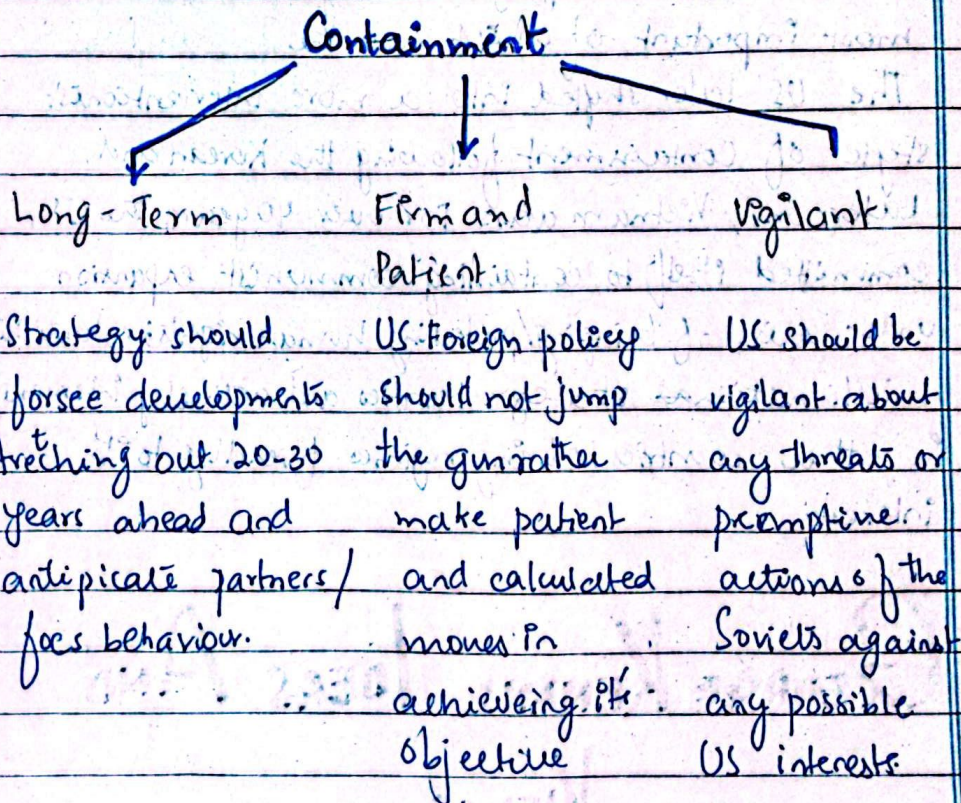 Containment
Long-Term
Strategy should
forsee developments
tretching out 20-30
years ahead and
antipicate partners/
foes behaviour.
Firm and
Patient
US Foreign policy
should not jump
the gun rather
make patient
and calculated
moves in
achieveing it's
objective
Vigilant
US should be
vigilant about
any threats or
premptive
actions of the
Soviets against
any possible
US interests.